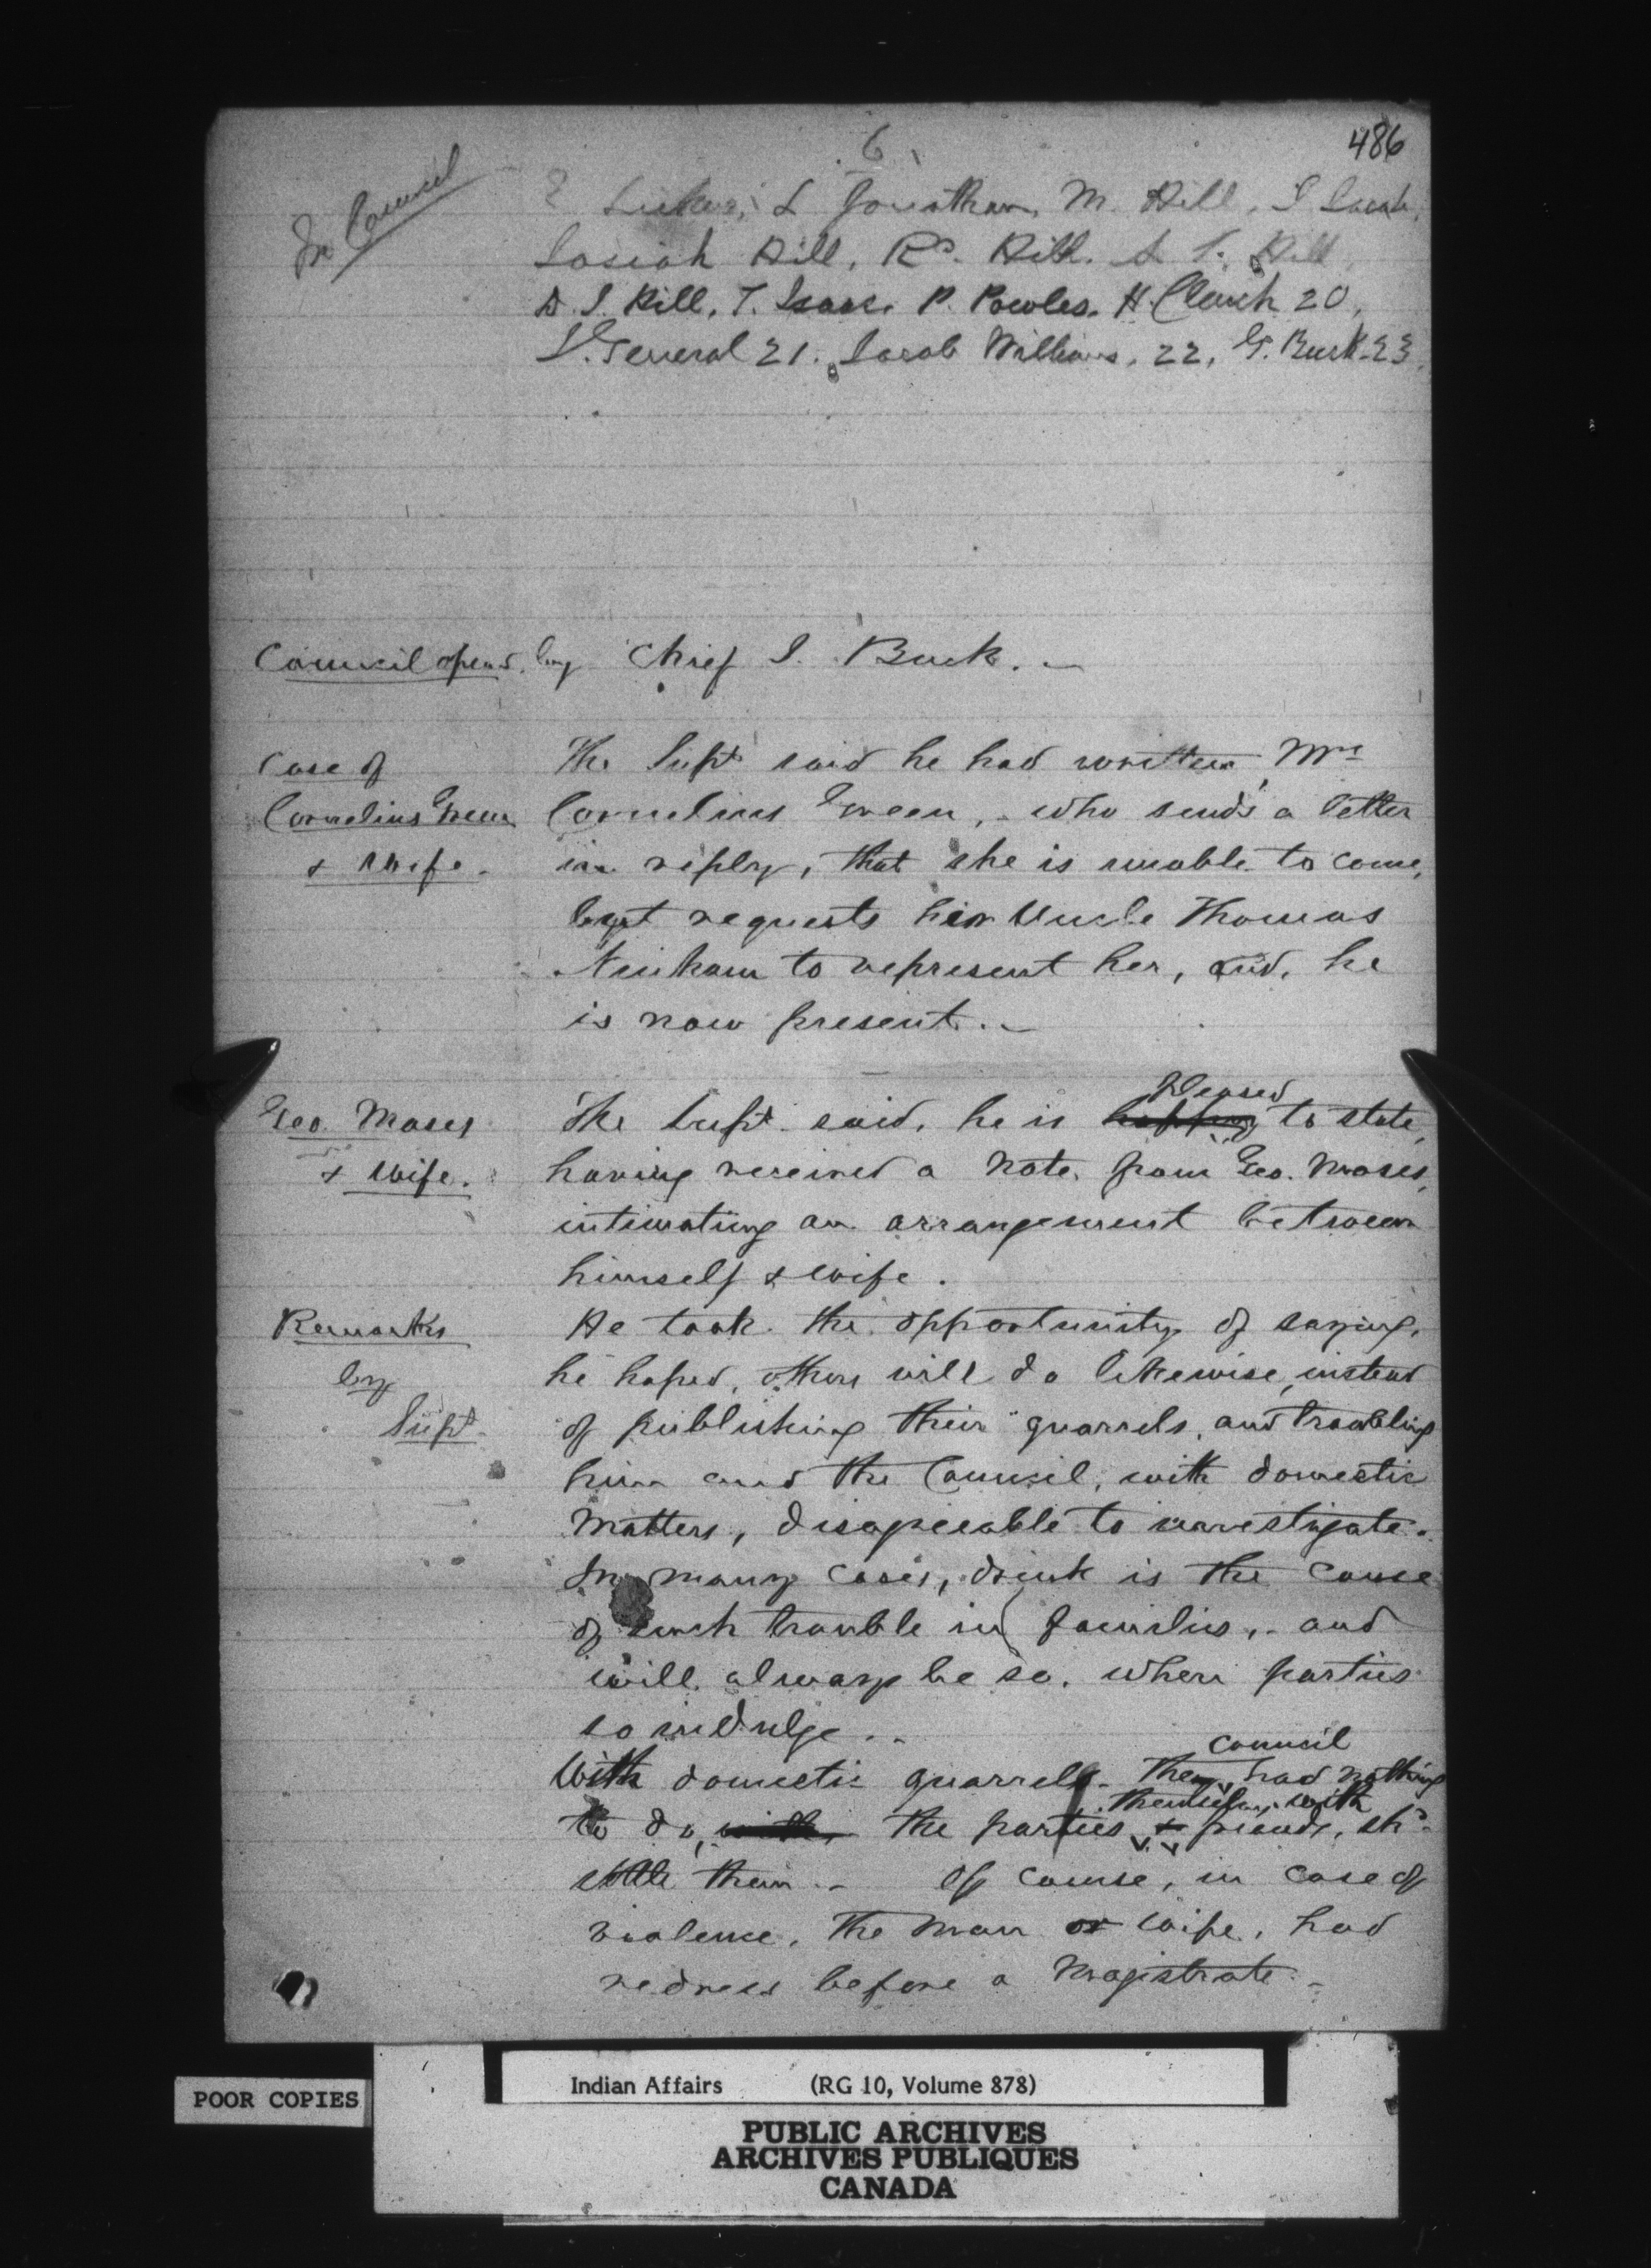 6
486
In Council
L Jonathan, M. Hill, I Jacob,
Josiah Hill, Rd. Hill. A. S. Hill,
D. S. Hill, T. Isaac, P. Powles, H. Clench 20,
L. General 21. Jacob Williams, 22, G. Buck 23.
Council opend. by Chief J. Buck.
Case of
Cornelius Green
& Wife.
The Supt said he had written Mrs
Cornelius Green, - who sends a letter
in reply, that she is unable to come,
but requests her Uncle Thomas
Ninham to represent her, and, he
is now present. -
Geo. Moses
& Wife.
The Supt said, he is happy pleased to state,
having received a note, from Geo. Moses,
intimating an arrangement between
himself & wife.
Remarks
by
Supt.
He took the opportunity of saying,
he hoped, others will do likewise, instead
of publishing their quarrels, and troubling
him and the Council, with domestic
matters, disagreeable to investigate.
In many cases, drink is the cause
of such trouble in families, - and
will always be so, where parties
so indulge. -
council
With domestic quarrels. The had nothing
themselves, with
to do, with, the parties & friends, shd
settle them. - Of course, in case of
violence, the man or wife, had
redress before a Magistrate. -
POOR COPIES
Indian Affairs (RG 10, Volume 878)
PUBLIC ARCHIVES
ARCHIVES PUBLIQUES
CANADA